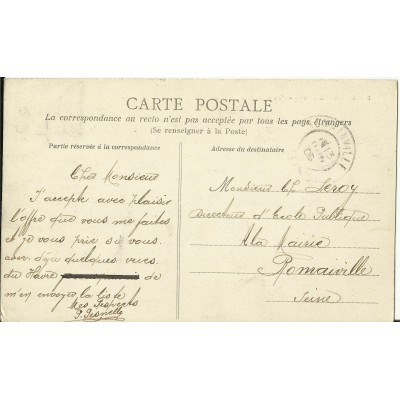 CARTE POSTALE
La correspondance au recto n'est pas acceptée par tous les pays étrangers
(Se renseigner à la Poste)
Partie réservée à la correspondance
Adresse du destinataire
Cher Monsieur
J'accepte avec plaisir
l'offre que vous me faites
et je vous prie si vous
avez déjà quelques vues
du Havre de
m'en envoyer la liste
Mes respects
Monsieur Ch. Leroy
Directeur d'Ecole Publique
à la Mairie
Romainville
Seine